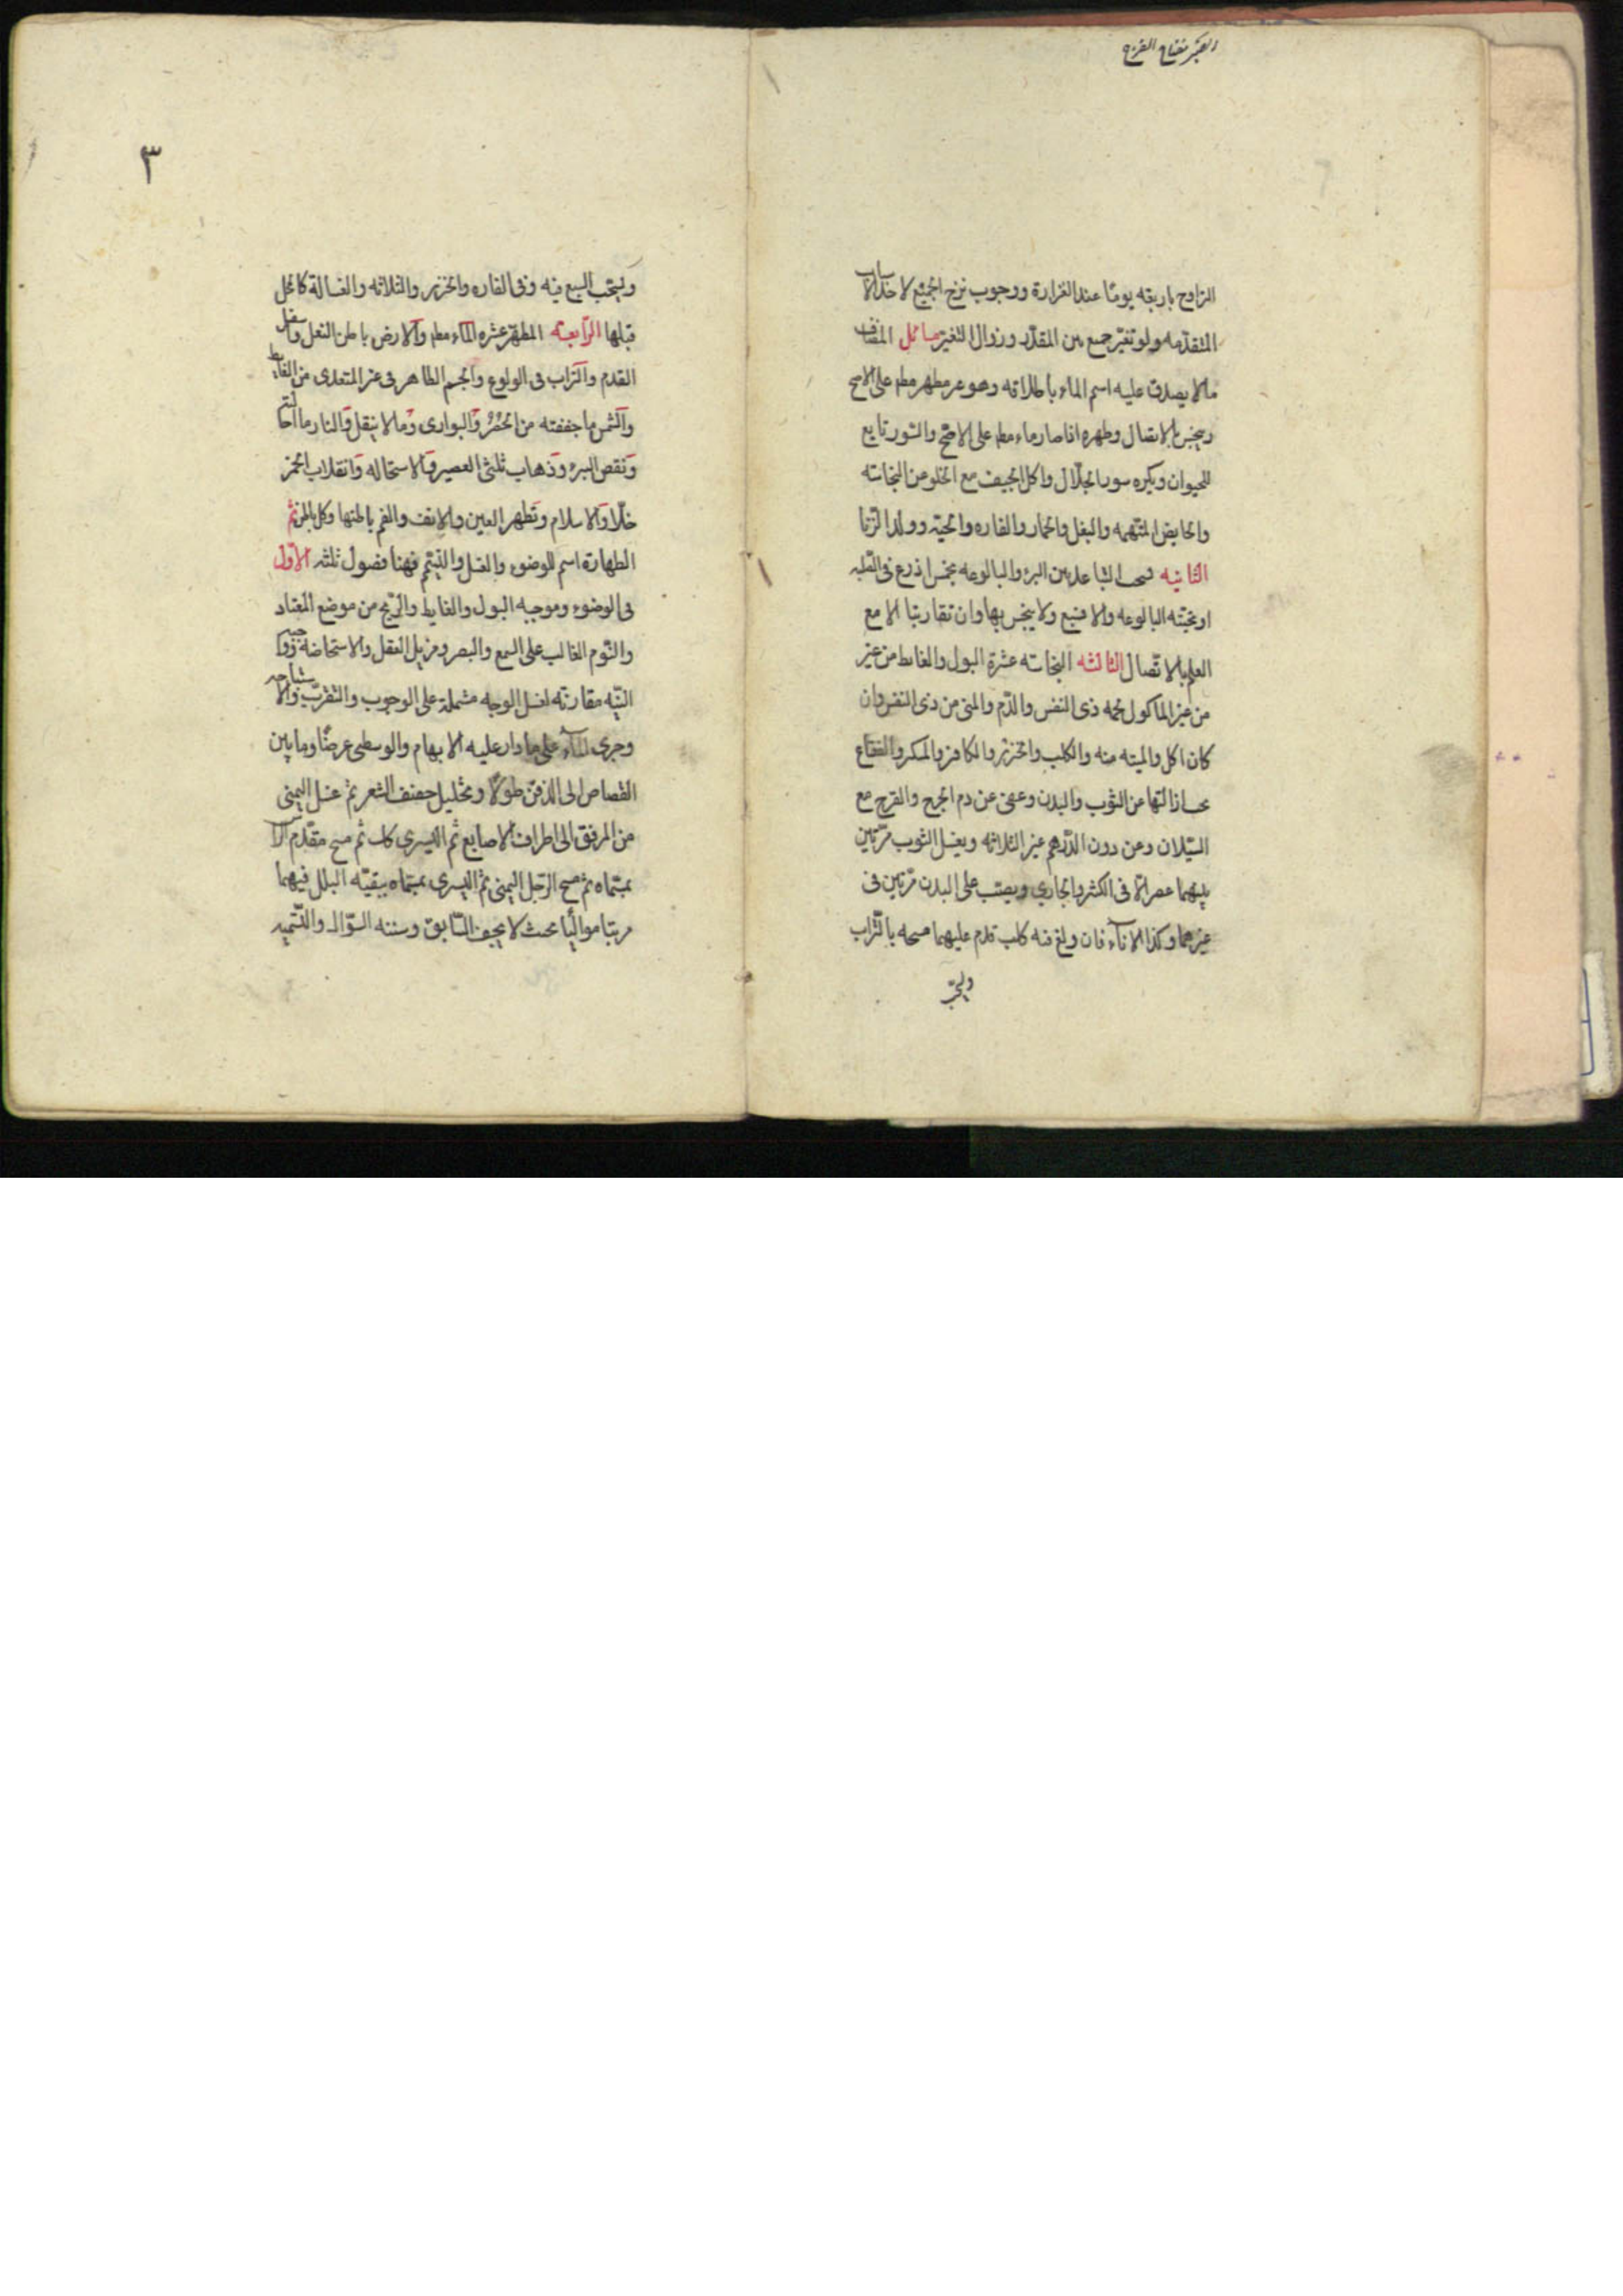 الصبر مفتاح الفرج
التراوح باربعه يومًا عند الغزارة ووجوب نزح الجميع لاختلاف الاسباب
المتقدّمه ولو تغيّر جمع بين المقدّر وزوال التغير مسائل المضاف
مالا يصدق عليه اسم الماء باطلاقه وهو غير مطهر مطم على الاصح
وينجس بالاتصال وطهره اذا صار ماء مطم على الاصحّ والسور تابع
للحيوان ويكره سور الجلّال واكل الجيف مع الخلو من النجاسة
والحايض المتّهمه والبغل والحمار والفاره والحيّه وولد الزّنا
الثانيه يستحب التباعد بين البئر والبالوعه بخمس اذرع فى الصّلبه
او تحتيّه البالوعه والا فسبع ولا ينجس بها وان تقاربتا الا مع
العلم بالاتّصال الثالثه النجاسته عشرة البول والغائط من غير
من غير الماكول لحمه ذى النفس والدّم والمنى من ذى النفس وان
كان اكل والميته منه والكلب والخنزير والكافر والمسكر والفقاع
يجب ازالتها عن الثوب والبدن وعفى عن دم الجرح والقرح مع
السّيلان ومن دون الدّرهم غير الثلاثه ويغسل الثوب مرّتين
بينهما عصر الّا فى الكثير والجاري ويصبّ على البدن مرّتين فى
غيرهما وكذا الاناء فان ولغ فيه كلب قدم عليهما مسحه بالتّراب
ويستحب
٣
ويستحب السبع فيه وفى الفاره والخنزير والثلاثه والغسالة كالمحل
قبلها الرّابعته المطهّر عشره الماء مطم والارض باطن النعل واسفل
القدم والتراب فى الولوغ والجسم الطاهر فى غير المتعدى من الغايط
والشمس ما جففته من الحُصُر والبوارى وما لا ينقل والنار ما احالته
ونقص البئر وذهاب ثلثى العصير والاستحاله وانقلاب الخمر
خلّا والاسلام وتطهر العين والانف والفم باطنها وكل باطن ثم
الطهارة اسم للوضوء والغسل والتيمّم فهنا فصول ثلثه الاوّل
فى الوضوء وموجبه البول والغايط والرّيح من موضع المعتاد
والنّوم الغالب على السمع والبصر ومزيل العقل والاستحاضة وواجبه
النيّه مقارنته لغسل الوجه مشتملة على الوجوب والتقرّب والاستباحه
وجرى الماء على ما دار عليه الابهام والوسطى عرضًا وما بين
القصاص الى الذقن طولًا وتخليل خفيف الشعر ثم غسل اليمنى
من المرفق الى اطراف الاصابع ثم اليسرى كك ثم مسح مقدّم الرّاس
بمسمّاه ثم مسح الرّجل اليمنى ثم اليسرى بمسمّاه ببقيّه البلل فيهما
مرتبا مواليًا بحيث لا يجف السّابق وسننه السّواك والتّسميه